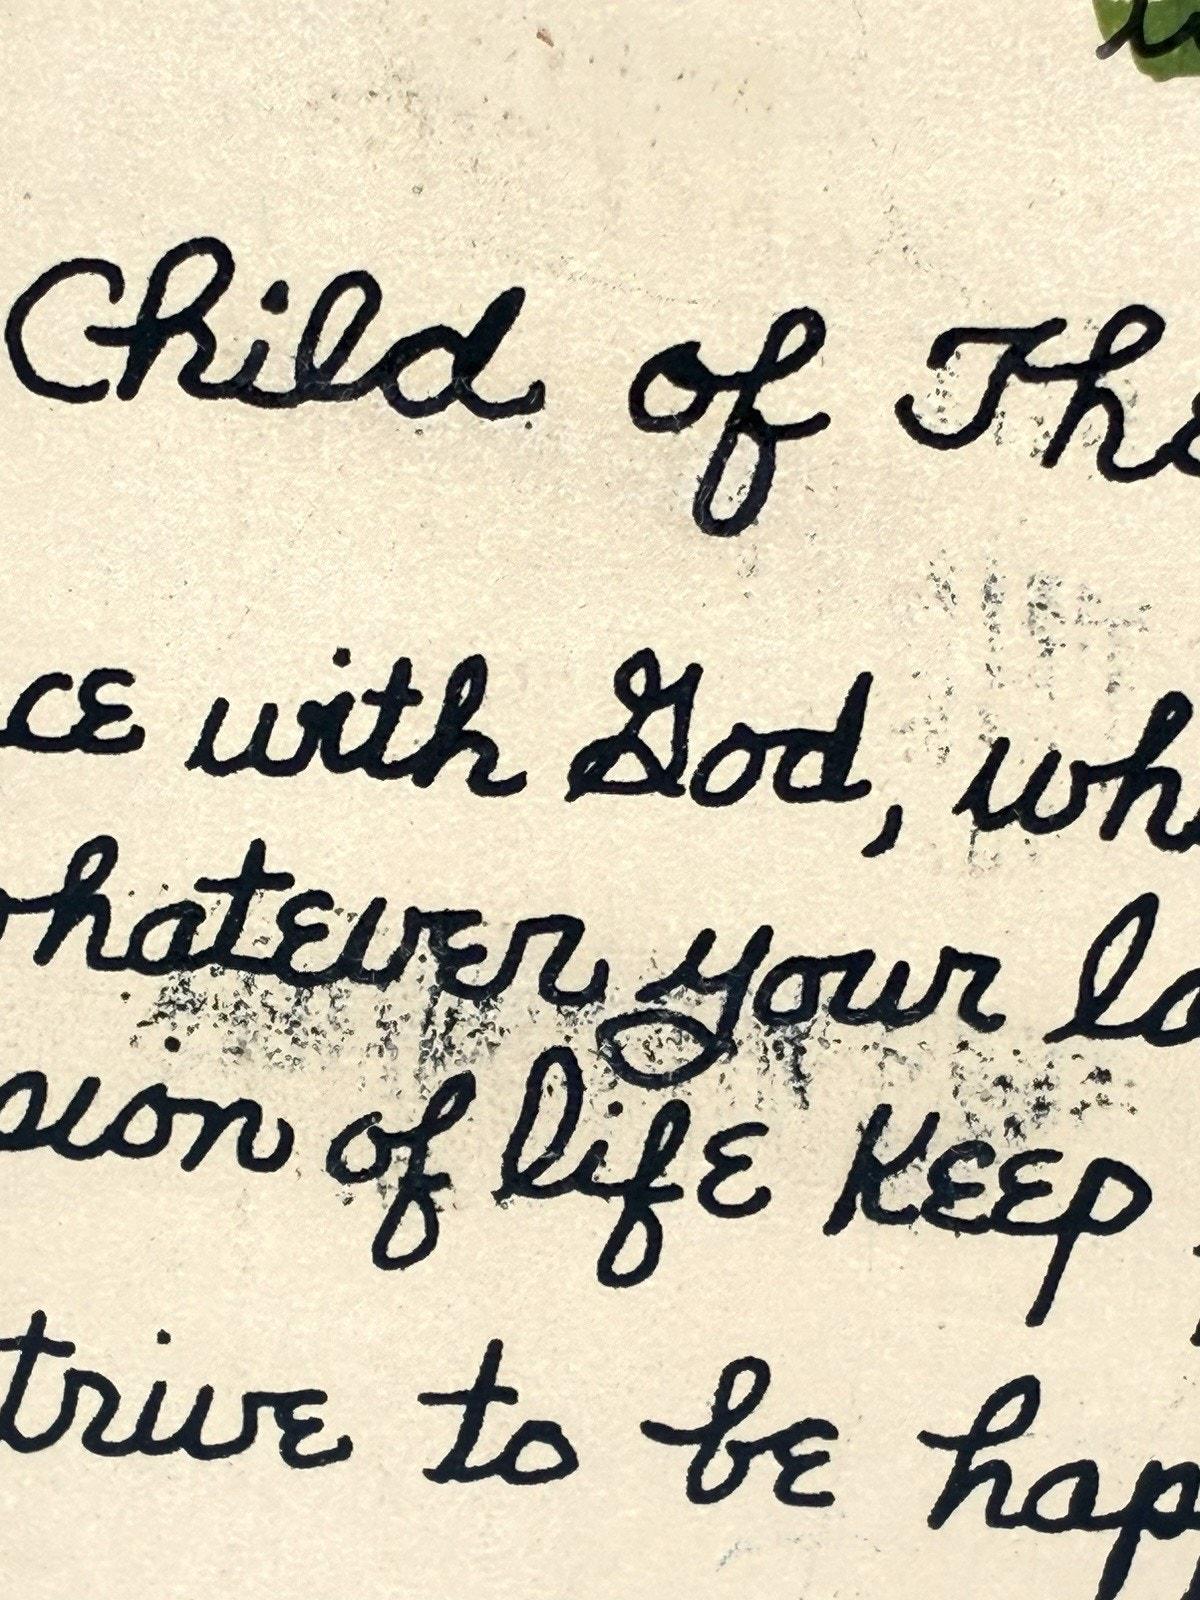 Child of The
ce with God, wh
whatever your la
sion of life keep
trive to be hap